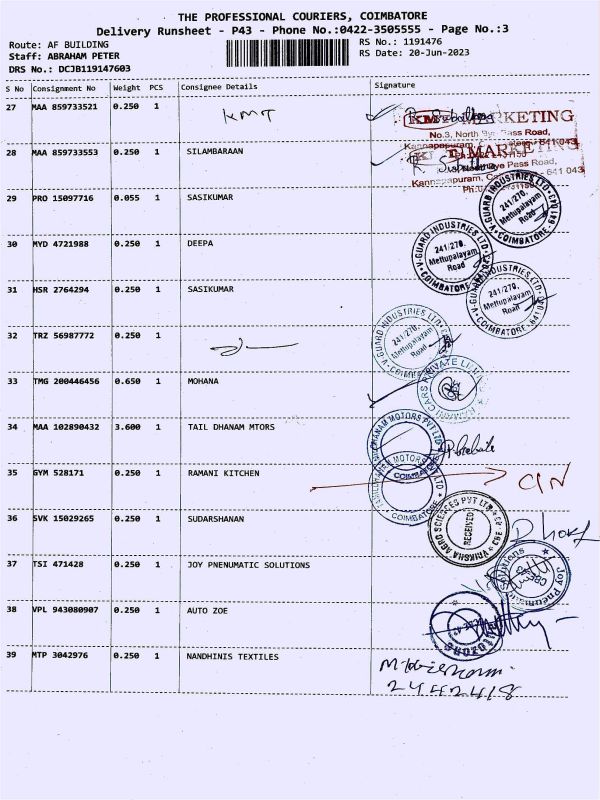 THE PROFESSIONAL COURIERS, COIMBATORE
Delivery Runsheet - P43 - Phone No.:0422-3505555 - Page No.:3
Route: AF BUILDING RS No.: 1191476
Staff: ABRAHAM PETER RS Date: 20-Jun-2023
DRS No.: DCJB119147603
S No Consignment No Weight PCS Consignee Details Signature
27 MAA 859733521 0.250 1 KMT
MARKETING
No.3, North Bye Pass Road,
28 MAA 859733553 0.250 1 SILAMBARAAN
MARKETING
Bye Pass Road,
29 PRO 15097716 0.055 1 SASIKUMAR
V-GUARD INDUSTRIES LTD
241/270,
Mettupalayam
Road
COIMBATORE - 641 043
30 MYD 4721988 0.250 1 DEEPA
V-GUARD INDUSTRIES LTD
241/270,
Mettupalayam
Road
COIMBATORE
31 HSR 2764294 0.250 1 SASIKUMAR
INDUSTRIES LTD
241/270,
Mettupalayam
Road
COIMBATORE - 641
32 TRZ 56987772 0.250 1
V-GUARD INDUSTRIES LTD
241/270,
Mettupalayam
Road
33 TMG 200446456 0.650 1 MOHANA
CARS PRIVATE
34 MAA 102890432 3.600 1 TAIL DHANAM MTORS
DHANAM MOTORS PVT LTD
COIMBATORE
35 GYM 528171 0.250 1 RAMANI KITCHEN
COIMBATORE
36 SVK 15029265 0.250 1 SUDARSHANAN
VRIKSHA AGRO SCIENCES PVT LTD
RECEIVED
37 TSI 471428 0.250 1 JOY PNENUMATIC SOLUTIONS
Joy Pneumatic Solutions
38 VPL 943080907 0.250 1 AUTO ZOE
39 MTP 3042976 0.250 1 NANDHINIS TEXTILES
2442418